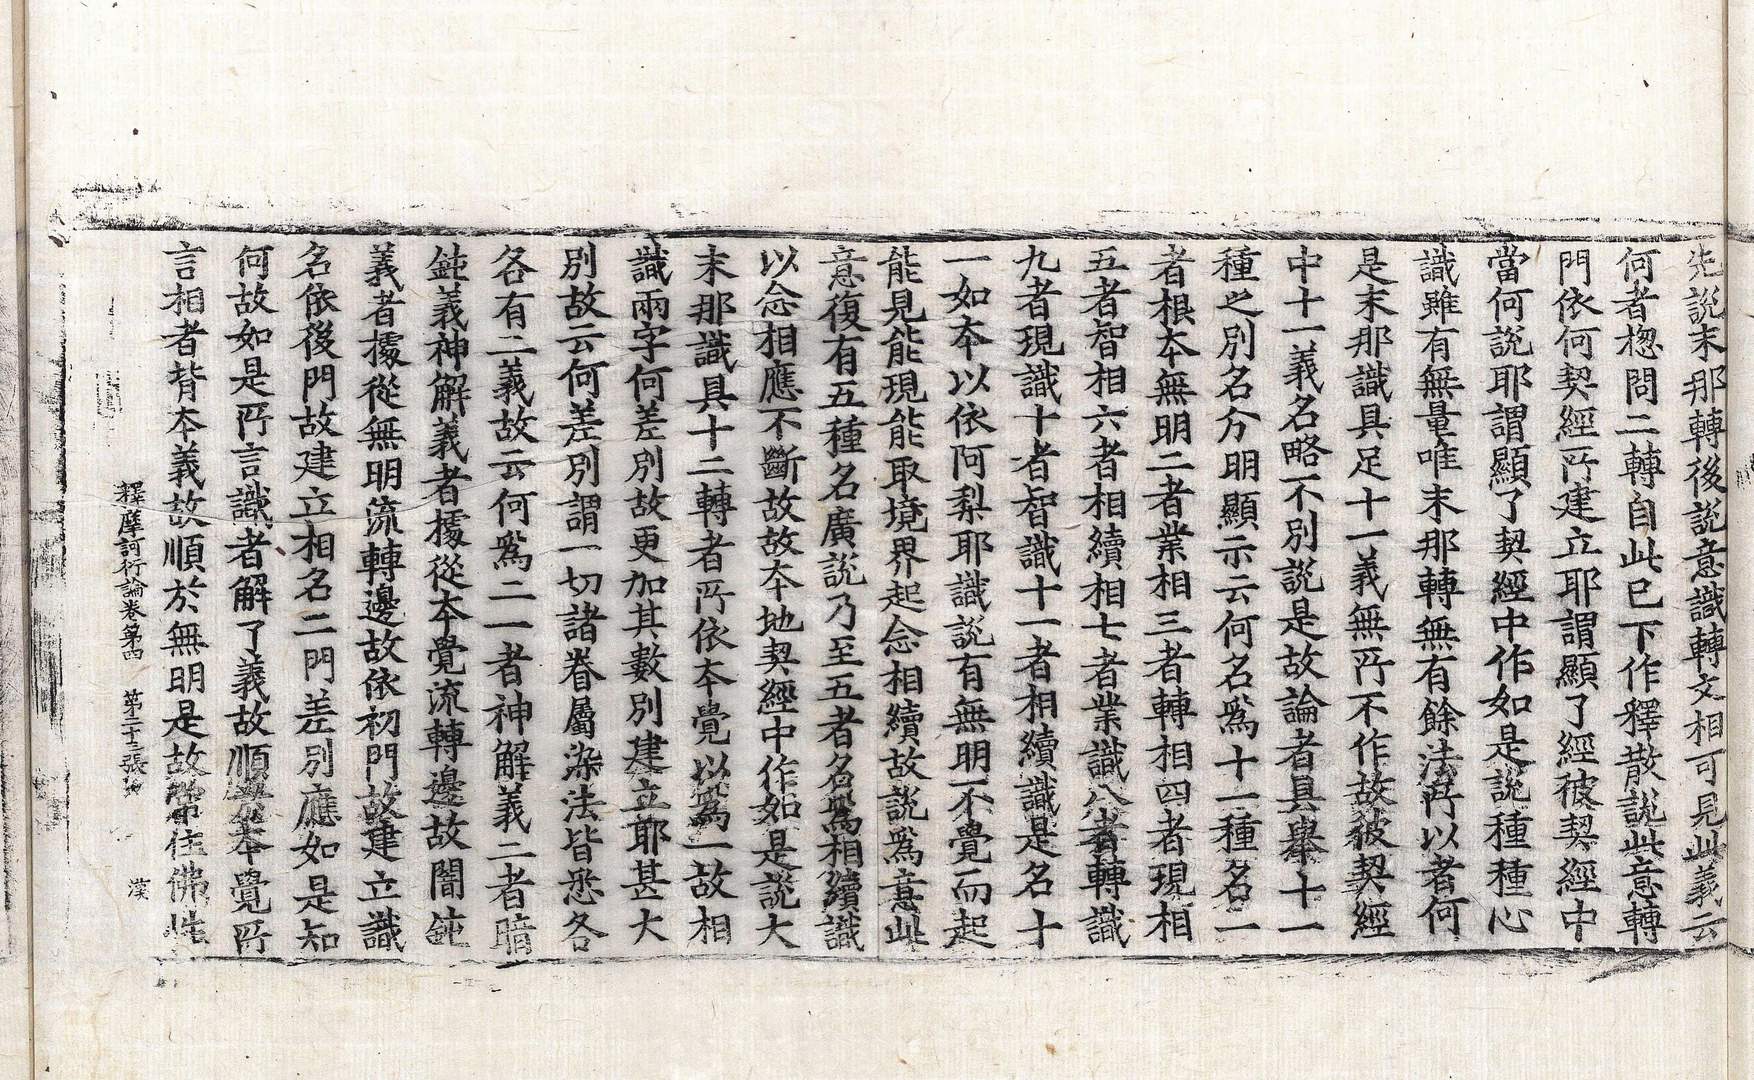 先說末那轉後說意識轉文相可見此義云
何者揔問二轉自此已下作釋散說此意轉
門依何契經所建立耶謂顯了經彼契經中
當何說耶謂顯了契經中作如是說種種心
識雖有無量唯末那轉無有餘法所以者何
是末那識具足十一義無所不作故彼契經
中十一義名略不別說是故論者具舉十一
種之別名分明顯示云何名爲十一種名一
者根本無明二者業相三者轉相四者現相
五者智相六者相續相七者業識八者轉識
九者現識十者智識十一者相續識是名十
一如本以依阿梨耶識說有無明不覺而起
能見能現能取境界起念相續故說爲意此
意復有五種名廣說乃至五者名爲相續識
以念相應不斷故故本地契經中作如是說大
末那識具十二轉者所依本覺以爲一故相
識兩字何差別故更加其數別建立耶甚大
別故云何差別謂一切諸眷屬染法皆悉各
各有二義故云何爲二一者神解義二者暗
鈍義神解義者據從本覺流轉邊故闇鈍
義者據從無明流轉邊故依初門故建立識
名依後門故建立相名二門差別應如是知
何故如是所言識者解了義故順於本覺所
言相者背本義故順於無明是故常住佛性
釋摩訶衍論卷第四 第二十三張 漢